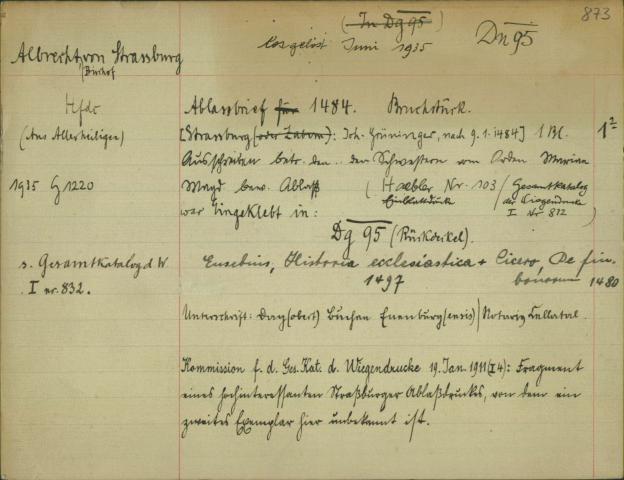 873
(In Dg 95)
losgelöst Juni 1935
Dn 95
Albrecht von Strassburg
/Bischof
Hfdr
(Aus Allerheiligen)
Ablassbrief für 1484. Bruchstück.
[Strassburg (oder Zabern): Joh. Grüninger, nach 9.1.1484] 1 Bl. 1²
Ausschreiben betr. den .. den Schwestern vom Orden Mariae
1935 G 1220
Magd bew. Ablaß (Haebler Nr. 103 / Gesamtkatalog
Einblattdruck der Wiegendrucke
war eingeklebt in: I Nr 872 )
Dg 95 (Rückdeckel).
s. Gesamtkatalog d. W.
I nr. 832.
Eusebius, Historia ecclesiastica + Cicero, De fin-
1497 bonorum 1480
Unterschrift: Dag(obert) Buchan Enenburg(ensis) Notariq
Kommission f. d. Ges. Kat. d. Wiegendrucke 19. Jan. 1911 (I 4): Fragment
eines hochinteressanten Straßburger Ablaßdrucks, von dem ein
zweites Exemplar hier unbekannt ist.